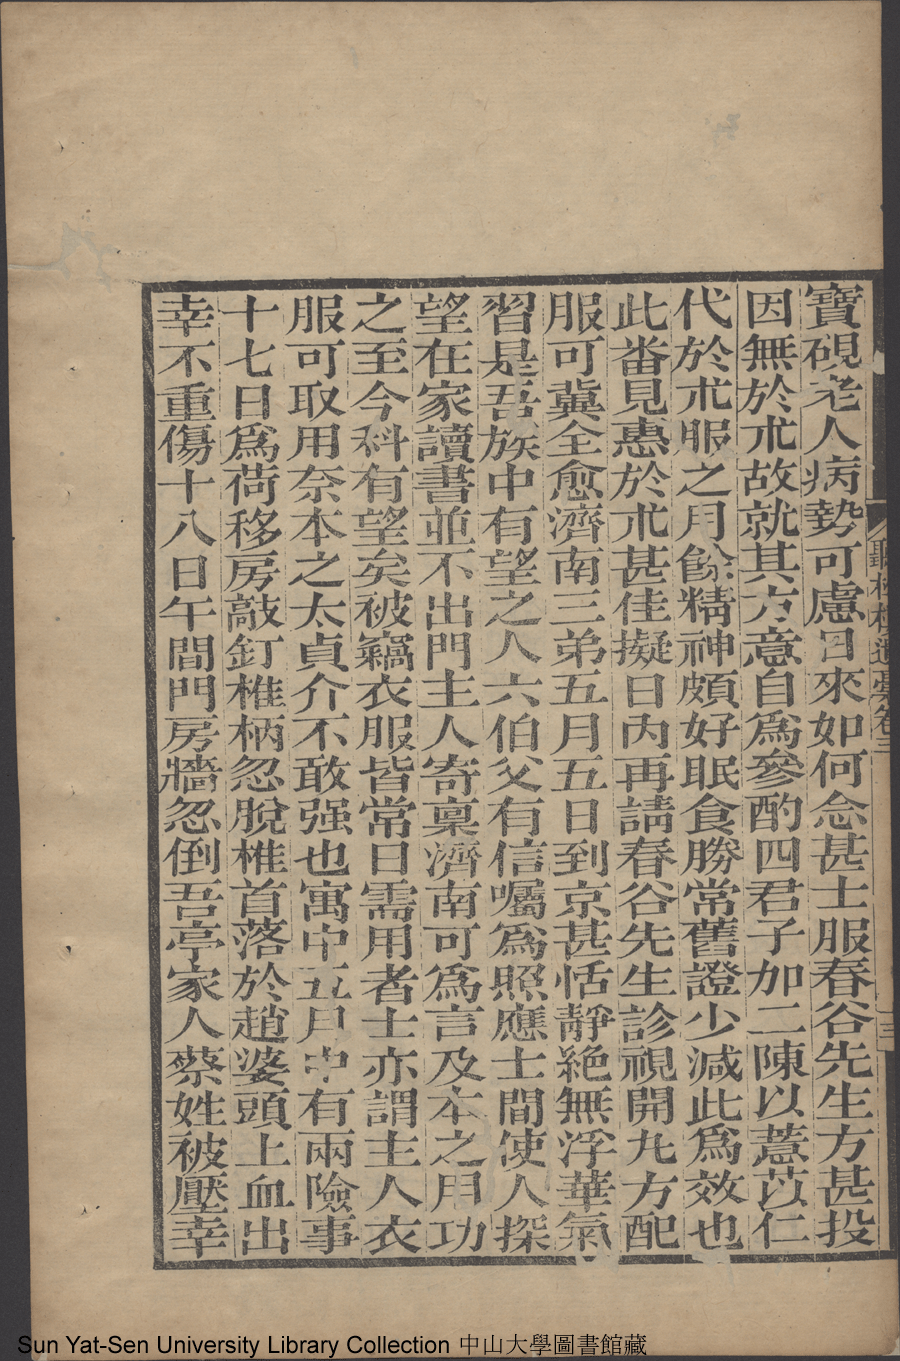 寶硯老人病勢可慮日來如何念甚士服春谷先生方甚投
因無於朮故就其方意自爲參酌四君子加二陳以薏苡仁
代於朮服之月餘精神頗好眠食勝常舊證少減此爲效也
此番見惠於朮甚佳擬日內再請春谷先生診視開丸方配
服可冀全愈濟南三弟五月五日到京甚恬靜絕無浮華氣
習是吾族中有望之人六伯父有信囑爲照應士間使人探
望在家讀書並不出門主人寄稟濟南可爲言及本之用功
之至今科有望矣被竊衣服皆常日需用者士亦謂主人衣
服可取用奈本之太貞介不敢强也寓中五月中有兩險事
十七日爲荷移房敲釘椎柄忽脫椎首落於趙婆頭上血出
幸不重傷十八日午間門房牆忽倒吾亭家人蔡姓被壓幸
聽松樓遺稾卷三
三
Sun Yat-Sen University Library Collection 中山大學圖書館藏